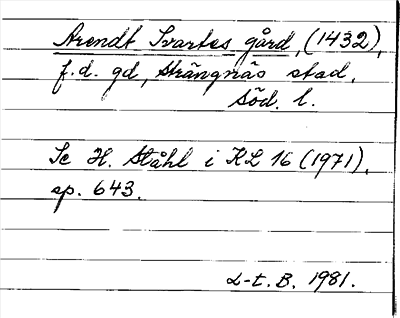 Arendt Svartes gård, (1432),
f.d. gd, Strängnäs stad,
Söd. l.
Se H. Ståhl i KL 16 (1971),
sp. 643.
L-t. B. 1981.